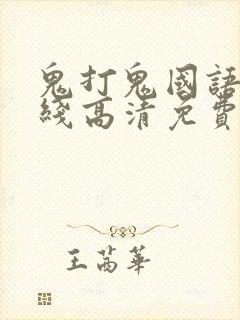 鬼打鬼國語
綫高清免費
王苒華